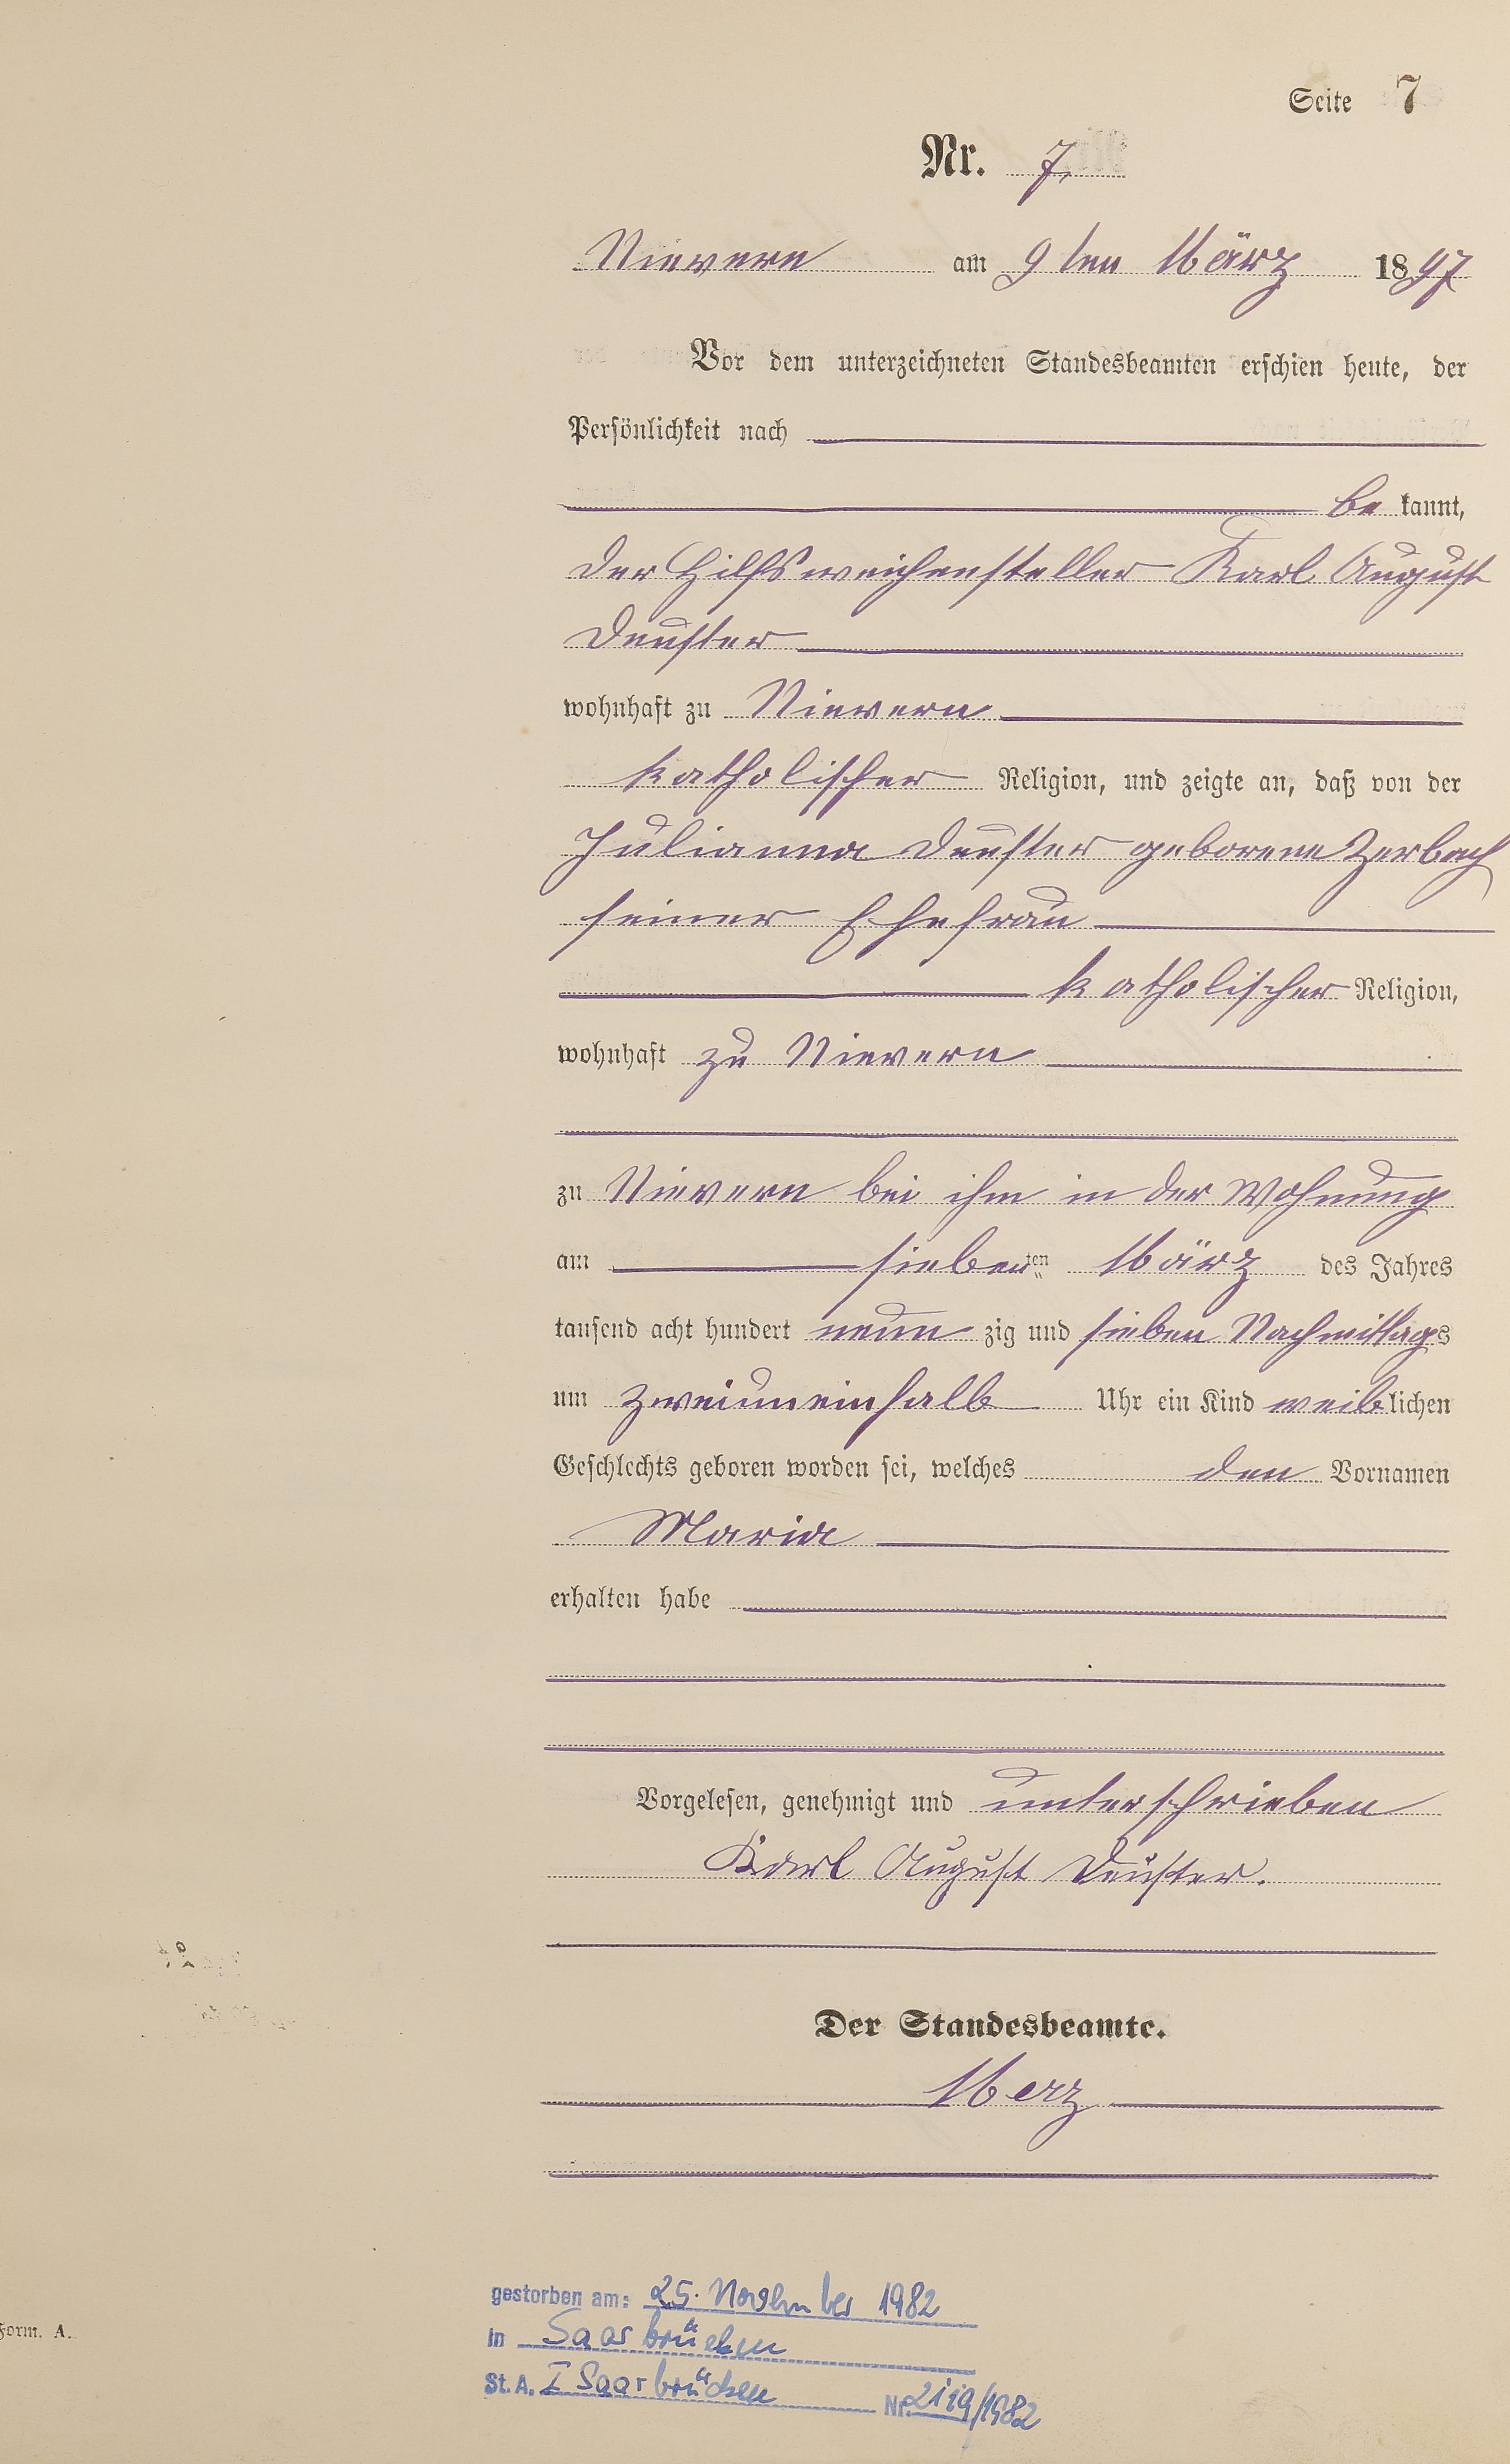 Seite 7
Nr. 7.
Nievern am 9ten März 1897
Vor dem unterzeichneten Standesbeamten erschien heute, der
Persönlichkeit nach
be kannt,
der Hilfsweichensteller Karl August
Deuster
wohnhaft zu Nievern
katholischer Religion, und zeigte an, daß von der
Julianna Deuster geborene Zerbach
seiner Ehefrau
katholischer Religion,
wohnhaft zu Nievern
zu Nievern bei ihm in der Wohnung
am siebenten März des Jahres
tausend acht hundert neun zig und sieben Nachmittags
um zweiuneinhalb Uhr ein Kind weiblichen
Geschlechts geboren worden sei, welches den Vornamen
Maria
erhalten habe
Vorgelesen, genehmigt und unterschrieben
Karl August Deuster.
Der Standesbeamte.
Merz
gestorben am: 25. November 1982
in Saarbrücken
Form. A.
St. A. I Saarbrücken Nr. /1982